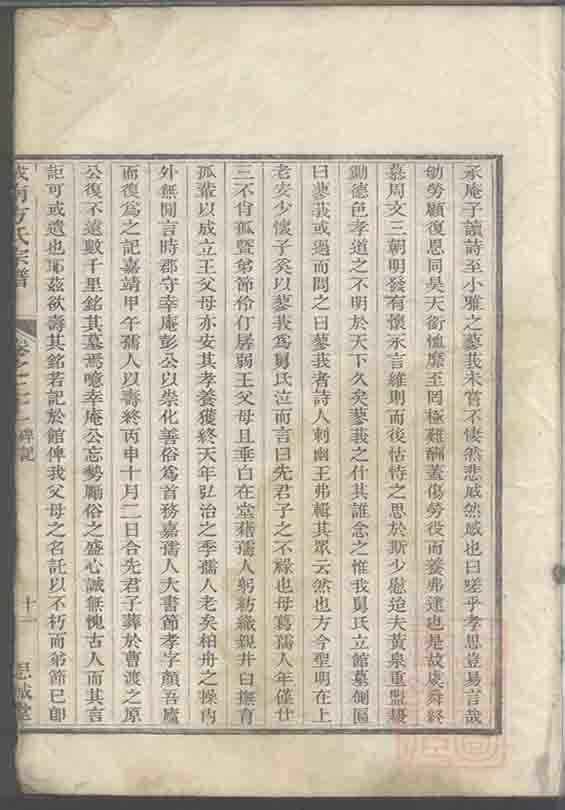 承庵子讀詩至小雅之蓼莪未嘗不悽然悲戚然感也曰嗟乎孝思豈易言哉
劬勞顧復恩同昊天銜恤靡至罔極難酬蓋傷勞役而養弗逮也是故虞舜終
慕周文三朝明發有懷永言維則而後怙恃之思於斯少慰迨夫黃泉重盟
鋤德色孝道之不明於天下久矣蓼莪之什其誰念之惟我舅氏立館墓側匾
曰蓼莪或過而問之曰蓼莪者詩人刺幽王弗輯其眾云然也方今聖明在上
老安少懷子奚以蓼莪爲舅氏泣而言曰先君子之不祿也母葛孺人年僅廿
三不肖孤暨弟節伶仃孱弱王父母且垂白在堂藉孺人躬紡織親井臼撫育
孤輩以成立王父母亦安其孝養獲終天年弘治之季孺人老矣柏舟之操內
外無閒言時郡守幸庵彭公以崇化善俗爲首務嘉孺人大書節孝字顏吾廬
而復爲之記嘉靖甲午孺人以壽終丙申十月二日合先君子葬於曹渡之原
公復不遠數千里銘其墓焉噫幸庵公忘勢勵俗之盛心誠無愧古人而其言
詎可或遺也茲欲壽其銘若記於館俾我父母之名託以不朽而弟節已卽
南方氏宗譜
卷之 碑記
十一
思誠堂